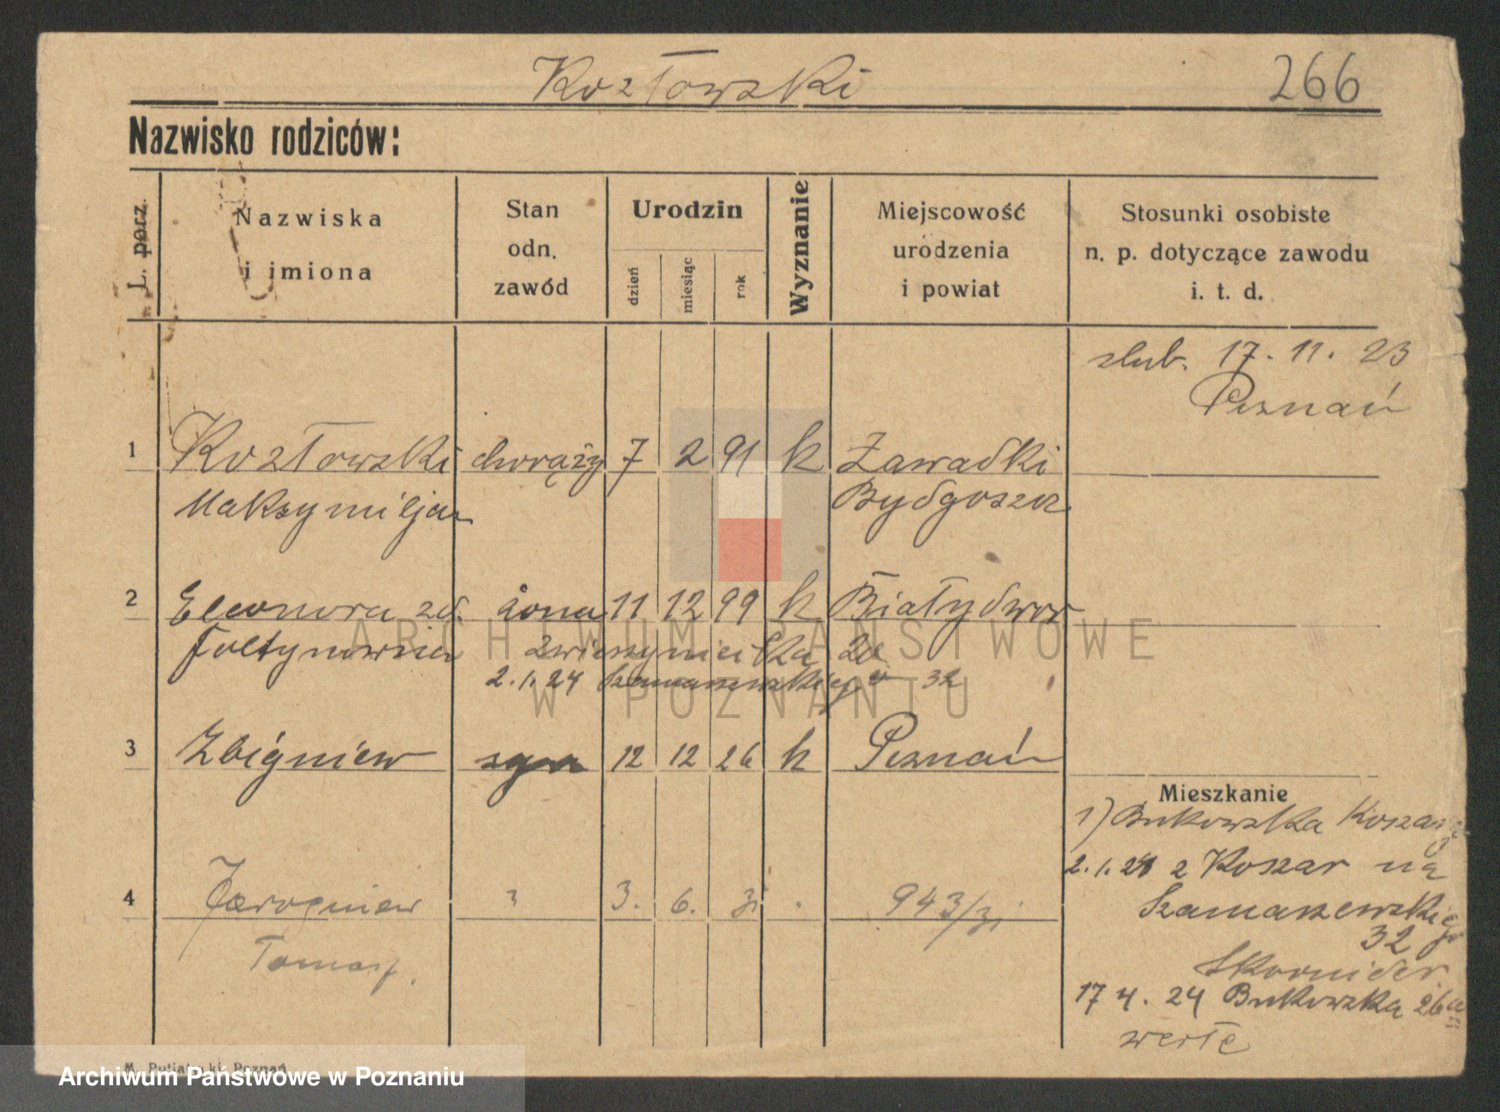 Kozłowski
266
Nazwisko rodziców:
L. porz.
Nazwiska
i imiona
Stan
odn.
zawód
Urodzin
dzień
miesiąc
rok
Wyznanie
Miejscowość
urodzenia
i powiat
Stosunki osobiste
n. p. dotyczące zawodu
i. t. d.
slub. 17. 11. 23
Poznań
1 Kozłowski chorąży 7 2 91 k Zawadki
Maksymiljan Bydgoszcz
2 Eleonora zd. żona 11 12 99 k Białydwor
Foltynowna
2.1.24 Szamarzewskiego 32
3 Zbigniew syn 12 12 26 k Poznań
Mieszkanie
1) Bukowska Koszary
2.1.24 z Koszar na
4 Jarogniew 3. 6. 31 943/31
Szamarzewskiego
32
Tomasz.
17 4. 24 Bukowska 26a
ARCHIWUM PAŃSTWOWE
W POZNANIU
Archiwum Państwowe w Poznaniu